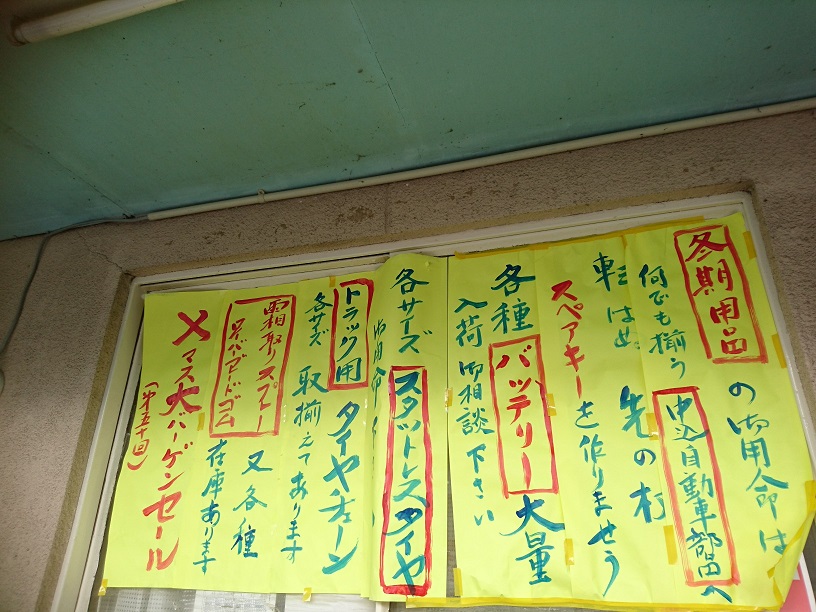 冬期用品の御用命は
何でも揃う申込自動車部品へ
転ばぬ先の杖
スペアキーを作りませう
各種バッテリー大量
入荷御相談下さい
各サイズスタットレスタイヤ
御用命
トラック用タイヤチェーン
各サイズ取揃えてあります
霜取りスプレー
又各種
ワイパーブレードゴム
在庫あります
Xマス大バーゲンセール
(第五十回)